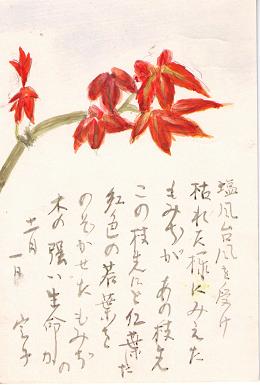 塩風台風を受け
枯れた様にみえた
もみぢが あの枝先
この枝先にと 紅葉た
紅色の若葉を
のぞかせたもみぢの
木の強い生命力
十一月一日